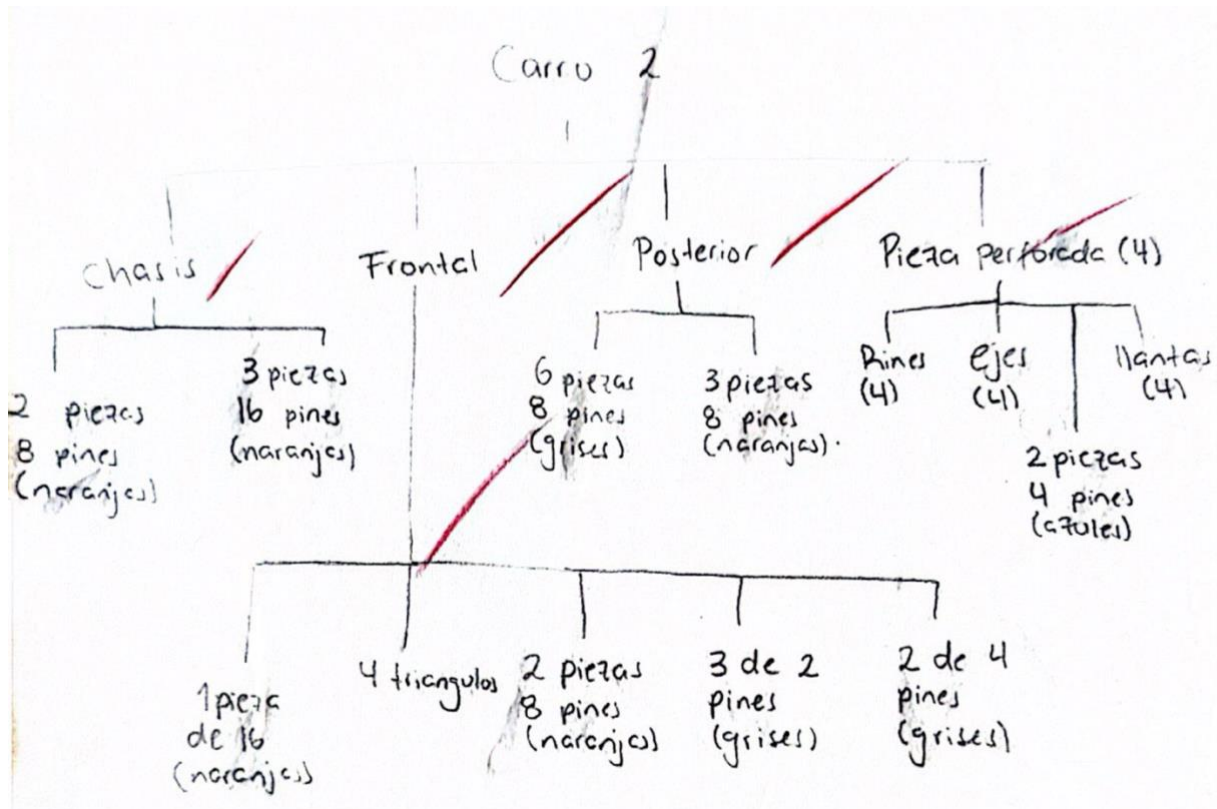 Carro 2
Chasis
Frontal
Posterior
Pieza perforada (4)
2 piezas
8 pines
(naranjas)
3 piezas
16 pines
(naranjas)
6 piezas
8 pines
(grises)
3 piezas
8 pines
(naranjas).
Rines
(4)
ejes
(4)
llantas
(4)
2 piezas
4 pines
(azules)
1 pieza
de 16
(naranjas)
4 triangulos
2 piezas
8 pines
(naranjas)
3 de 2
pines
(grises)
2 de 4
pines
(grises)